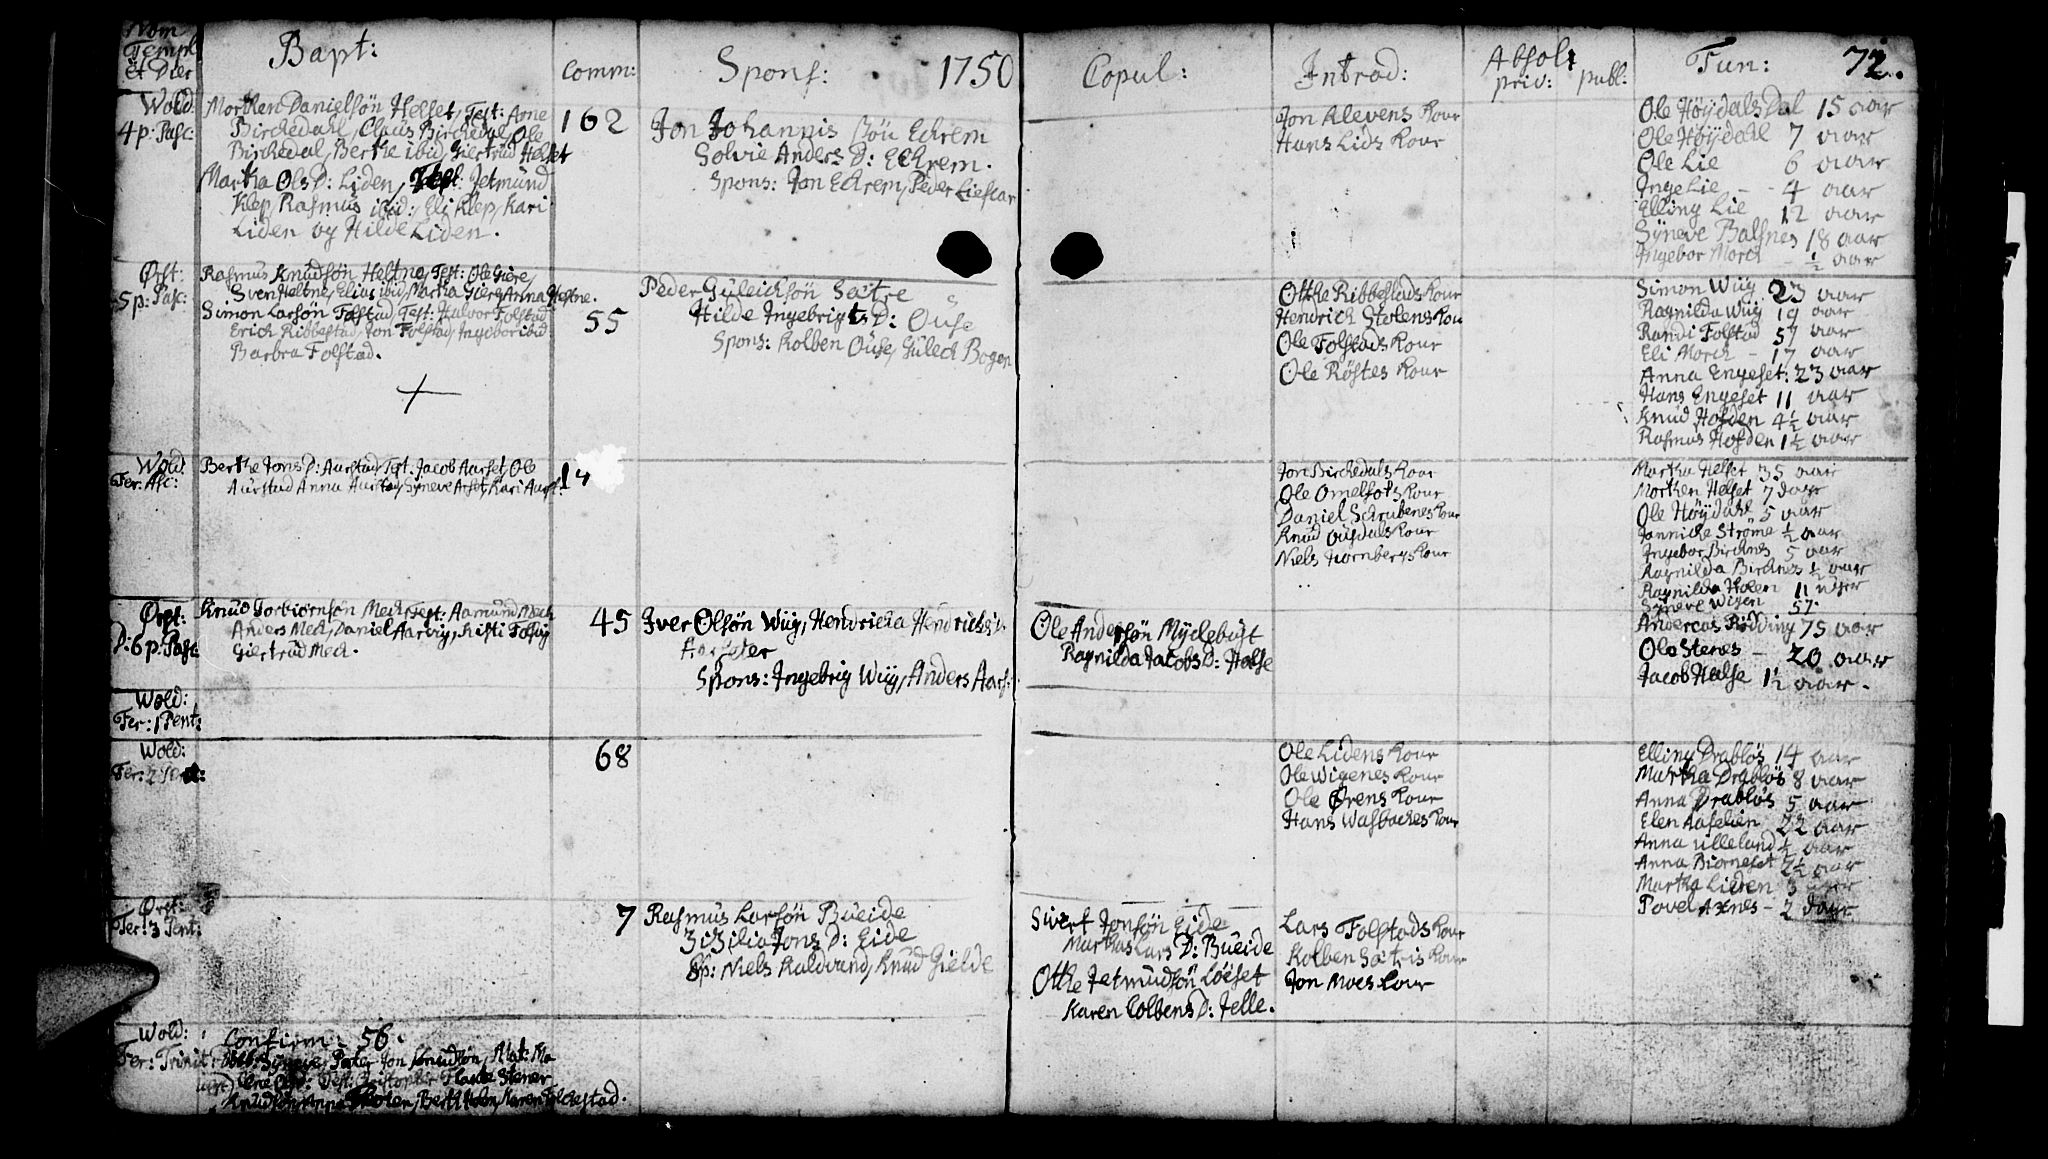 Nom
Templ
et Dier
Bapt:
Comm:
Spons:
1750
Copul:
Introd:
Absol:
priv: publ:
Fun:
72.
Wold:
4 p: Pasc:
Morten Danielsön Helset, Test: Arne
Birckedahl, Claus Birckedal, Ole
Birckedal, Berthe ibid, Giertrud Helset
Martha Ols D: Liden, Test: Jetmund
Klep, Rasmus ibid:, Eli Klep, Kari
Liden og Hilde Liden.
162
Jon Johannis Sön Eckrem
Solvie Anders D: Eckrem.
Spons: Jon Eckrem, Peder Liestar
Jon Klevens Kone
Hans Lids Kone
Ole Höydals Dal 15 aar
Ole Höydahl 7 aar
Ole Lie 6 aar
Inge Lie - - 4 aar
Elling Lie 12 aar
Syneve Balsnes 18 aar
Ingebor Morck - ½ aar
Ørst:
5 p: Pasc:
Rasmus Knudsön Heltne, Test: Ole Giere,
Sven Heltne, Elias ibid, Martha Giere, Anna Heltne.
Simon Larsön Folstad, Test: Halvor Folstad
Erich Ribbestad, Jon Folstad, Ingebor ibid
Barbra Folstad.
55
Peder Guleichsön Sætre
Hilde Ingebrigts D: Ouse
Spons: Kolben Ouse, Guleck Bogen
Otthe Ribbestads Kone
Hendrich Stolens Kon
Ole Folstads Kone
Ole Röstes Kone
Simon Wüg 23 aar
Ragnilda Wüg 19 aar
Randi Folstad 57 aar
Eli Morck - 17 aar
Anna Engeset: 23 aar
Hans Engeset 11 aar
Knud Hofden 4½ aar
Rasmus Hofden 1½ aar
Wold:
Fer: Asc:
Berthe Jons D: Aurstad, Test. Jacob Aarset, Ole
Aurstad Anna Aurstad, Syneve Arset, Kari Aurst.
14
Jon Birckedals Kone
Ole Omelfots Kone
Daniel Schrubenes Kone
Knud Ousdals Kone
Niels Hornbergs Kone
Martha Helset 35 aar
Morthen Helset 7 dage
Ole Höydahl 5 aar
Jannicke Ströme ½ aar
Ingebor Bircknes 5 aar
Ragnilda Bircknes ½ aar
Ragnilda Holen 11 uger
Syneve Wigen 57.
Ørst:
D: 6 p: Pasc:
Knud Torbiörnsön Meck Test: Aamund Meck
Anders Meck, Daniel Aarvig, Kisti Folsvig
Giertrud Meck.
45
Iver Olsön Wüg, Hendricka Hendrichs D:
Aarseter
Spons: Ingebrig Wüg, Anders Aars:
Ole Andersön Myclebust
Ragnilda Jacobs D: Halse
Andereas Rödding 75 aar
Ole Stenes - 20 aar
Jacob Halse 1½ aar.
Wold:
Fer: 1 Pent:
Wold:
Fer: 2 Pent:
68
Ole Lidens Kone
Ole Wigenes Kone
Ole Ørens Kone
Hans Wasbackes Kone
Elling Drablös 14 aar
Martha Drablös 8 aar
Anna Drablös 5 aar
Elen Aaselien 22 aar
Anna Ulleland ½ aar
Anna Biörneset 2½ aar
Martha Lieden 3 uger
Povel Axnes - 2 dage
Ørst:
Fer: 3 Pent:
7
Rasmus Larsön Bueide
Zizilia Jons D: Eide
Sp: Niels Kaldvand, Knud Gielde
Sivert Jonsön Eide
Martha Lars D: Bueide
Otthe Jetmundsön Löeset
Karen Colbens D: Jelle.
Lars Folstads Kone
Kolben Sætris Kone
Jon Moes Kone
Wold:
Fer: Trinit:
Confirm: 56.
Syneve, Pater Jon Knudsön, Mat: Ma
Test: Cristopher Flaate Stener
Knudsön Anna Holen, Berthe Holen, Karen Folckestad.